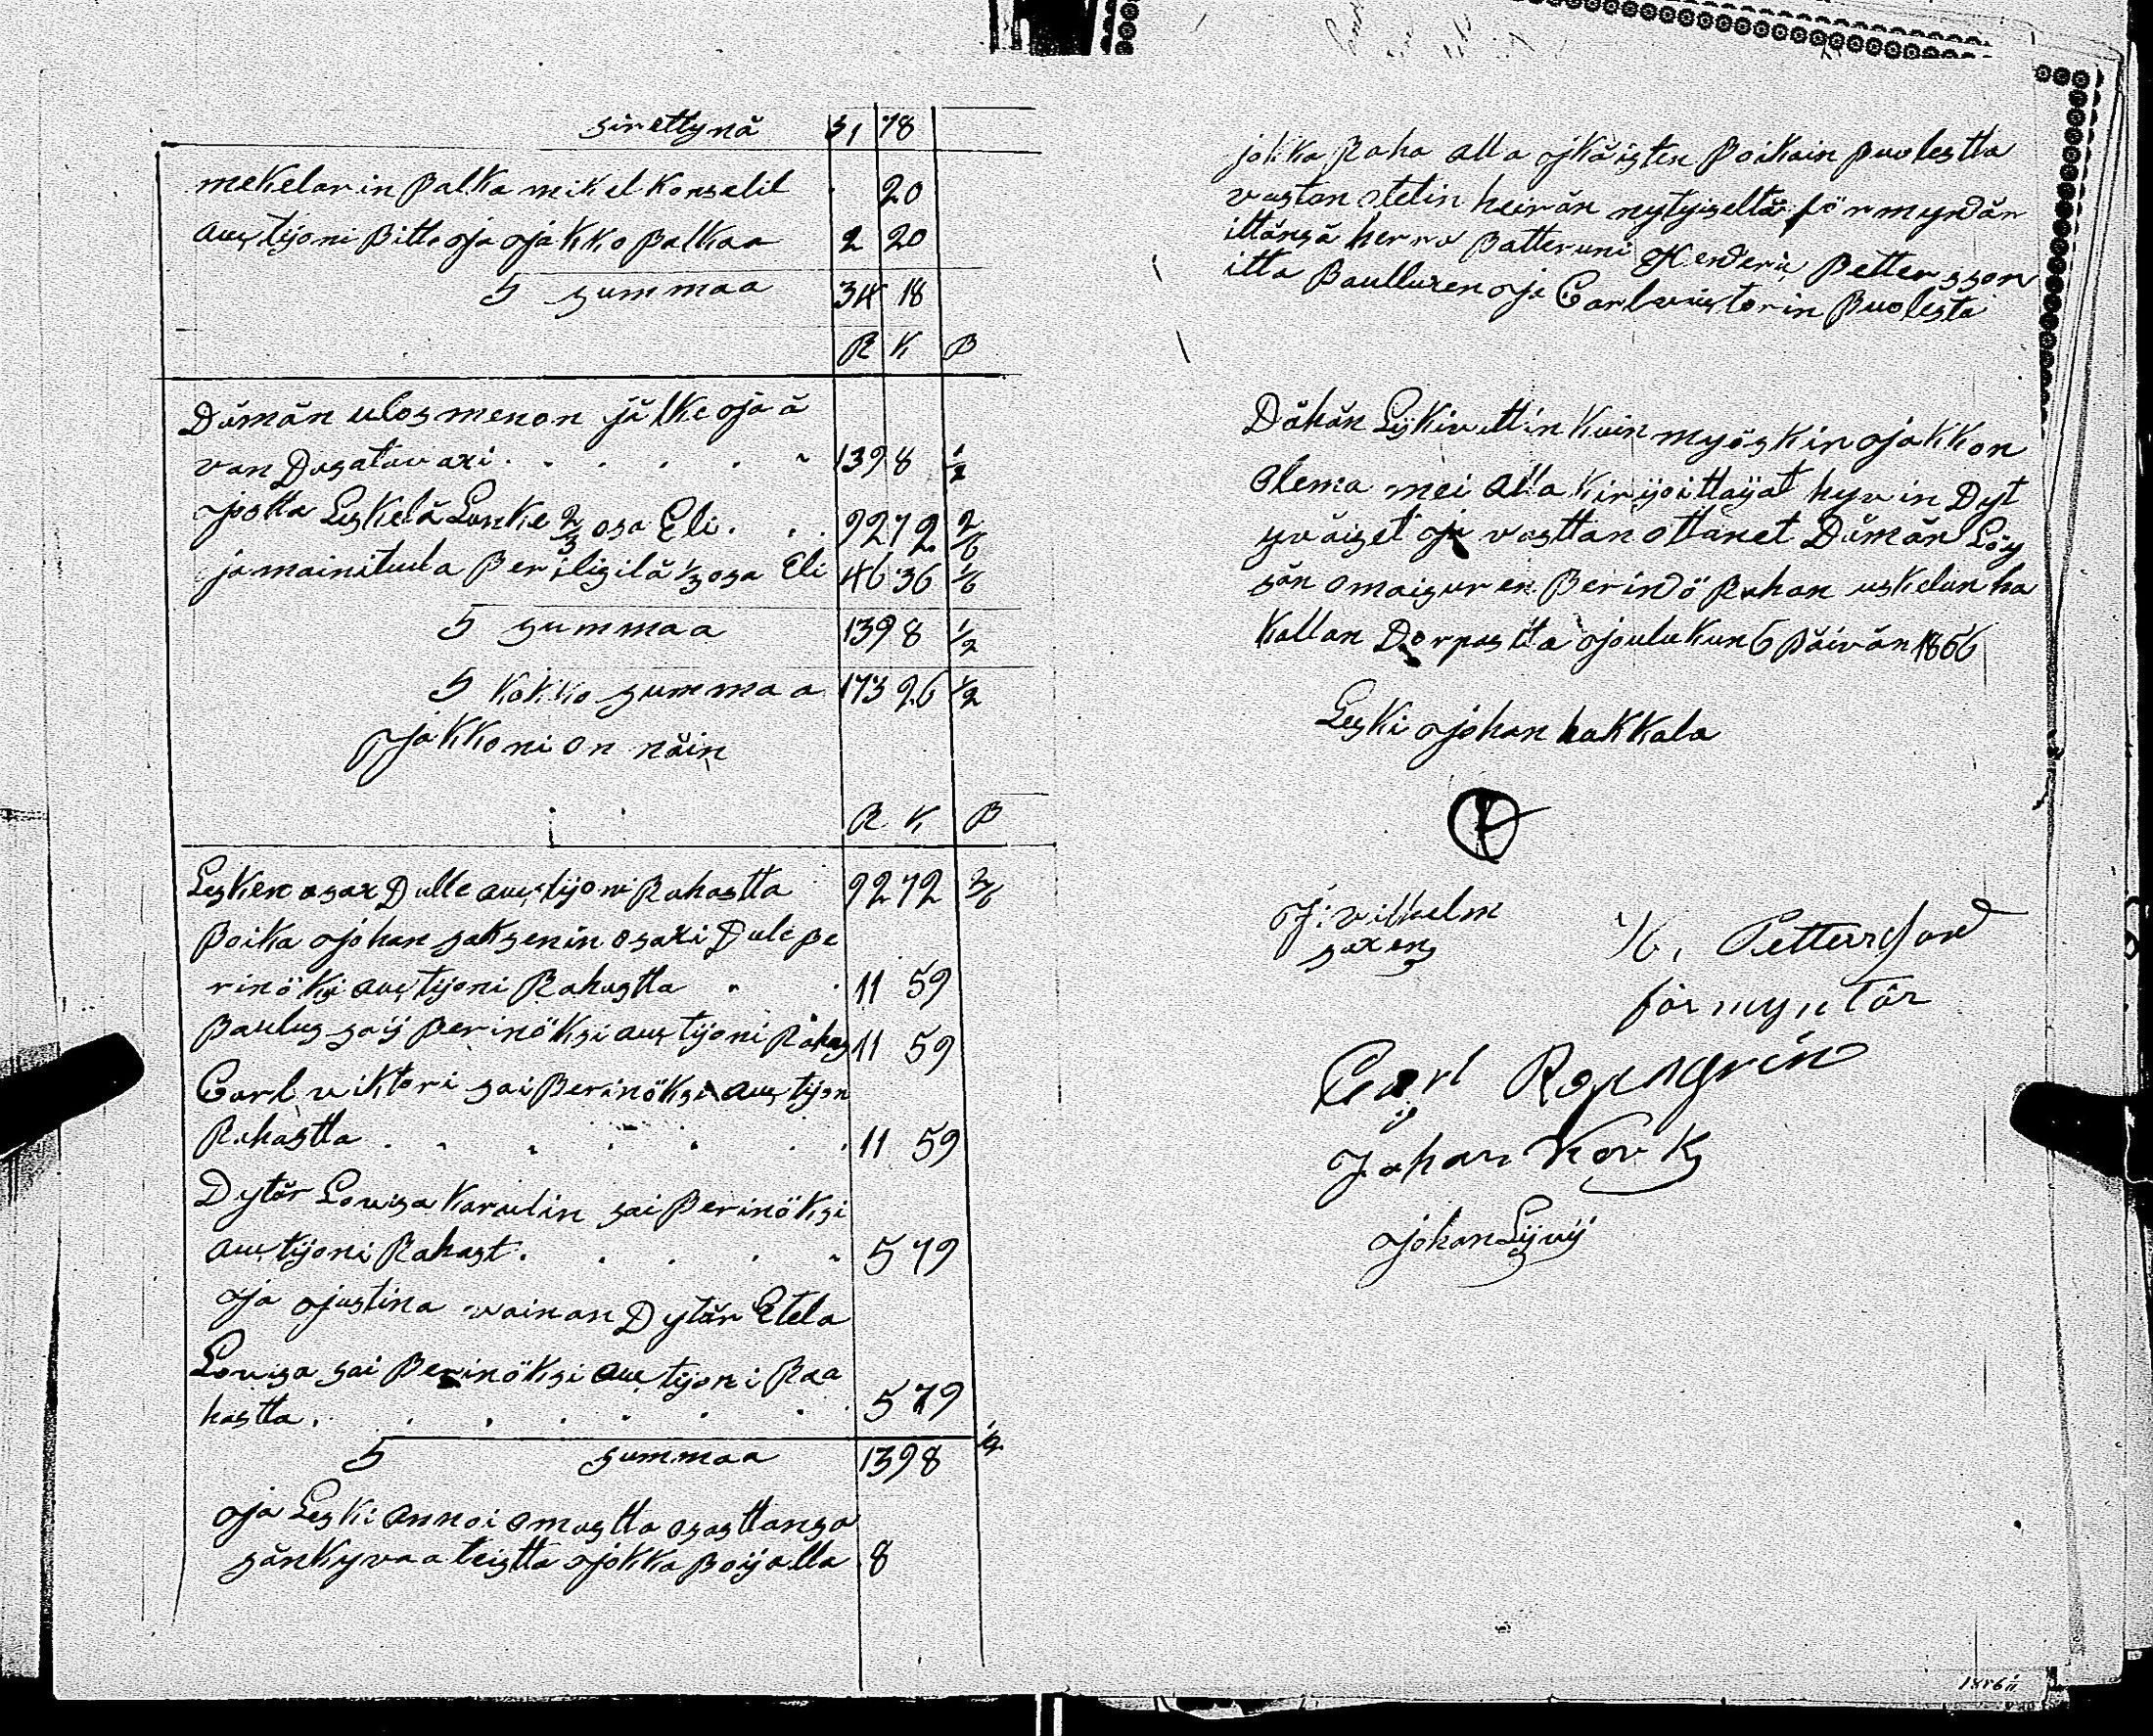 sirettynä 31 78
mekelarin Palka mikel Konselil . 20
auctijoni Pitto oja ojakko Palkaa 2 20
S summaa 34 18
R K P
Dämän ulosmenon jälke ojää
van Dasatavaxi . . . . . 139 8 1/2
josta Leskelä Lanke 2/3 osa Eli . . . 92 72 2/6
ja mainitulla Perilisilä 1/3 osa Eli 46 36 1/6
S summaa 139 8 1/2
S kokko summaa 173 26 1/2
ojakkoni on näin
R K P
Lesken osax Dulle auctijoni Rahastta 92 72 2/6
Poika ojohan saksenin osaxi Dule Pe
rinöksi auctijoni Rahastta . . 11 59
Paulus saij Perinöksi auctijoni Rahas 11 59
Carl viktori sai Perinöksi auctijon
Rahastta . . . . . . . 11 59
Dytär Lovisa Karulin sai Perinöksi
auctijoni Rahast . . . . . 5 79
oja ojustina vainan Dytär Etela
Lovisa sai Perinöksi auctijoni Raa
hastta . . . . . . . 5 79
S summaa 139 8 1/2
oja Leski annoi omastta osasttansa
sänkyvaateistta ojokka Poijalla . 8
jokka Raha alla ojkäisten Poikain Puolestta
vastan otetin heirän nytyiseltä förmyndär
iltänsä herra Batteruni Henderik Pettersson
ilta Paulluxen oja Carl viktorin Puolesta
Dähän Lykivittin kuin myöskin ojakkon
olema mei alla kirijoittajat hyvin Dyt
yväiset oja vasttan ottanet Dämän Löy
sän omaisuren Perindö Rahan uskelan ha
kallan Dorpastta ojoulukun 6 Päivän 1866
Leski ojohan hakkala
J: vilhelm
saxen
H. Pettersson
förmyntör
Carl Rosngrén
Johan Kork
ojohan Lyvij